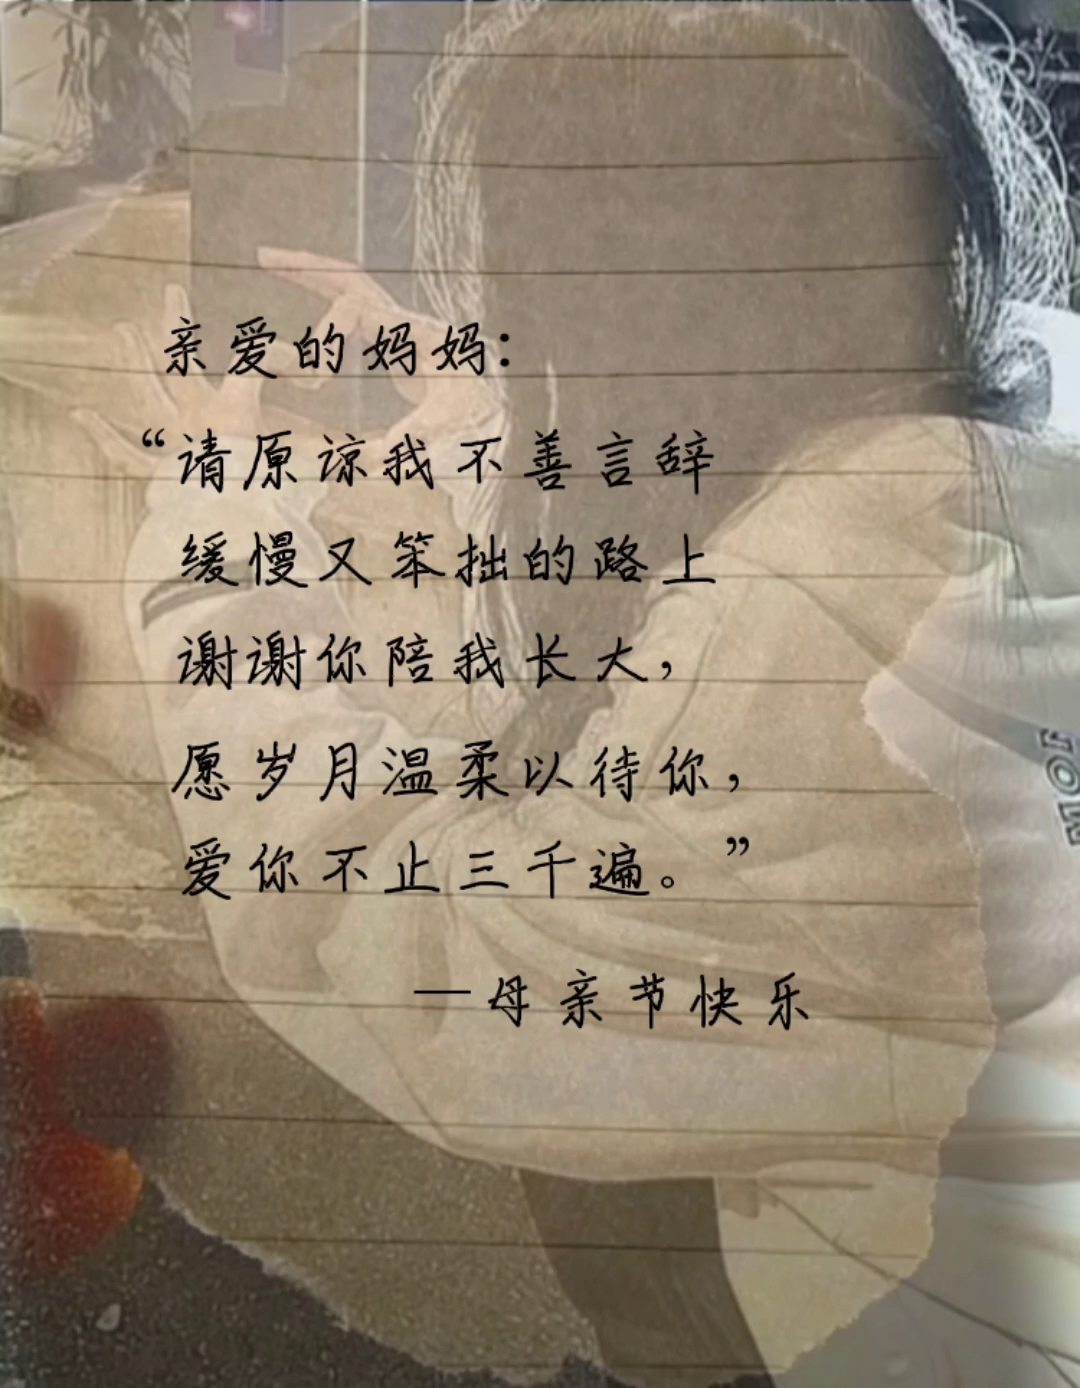 亲爱的妈妈:
“请原谅我不善言辞
缓慢又笨拙的路上
谢谢你陪我长大，
愿岁月温柔以待你，
爱你不止三千遍。”
—母亲节快乐